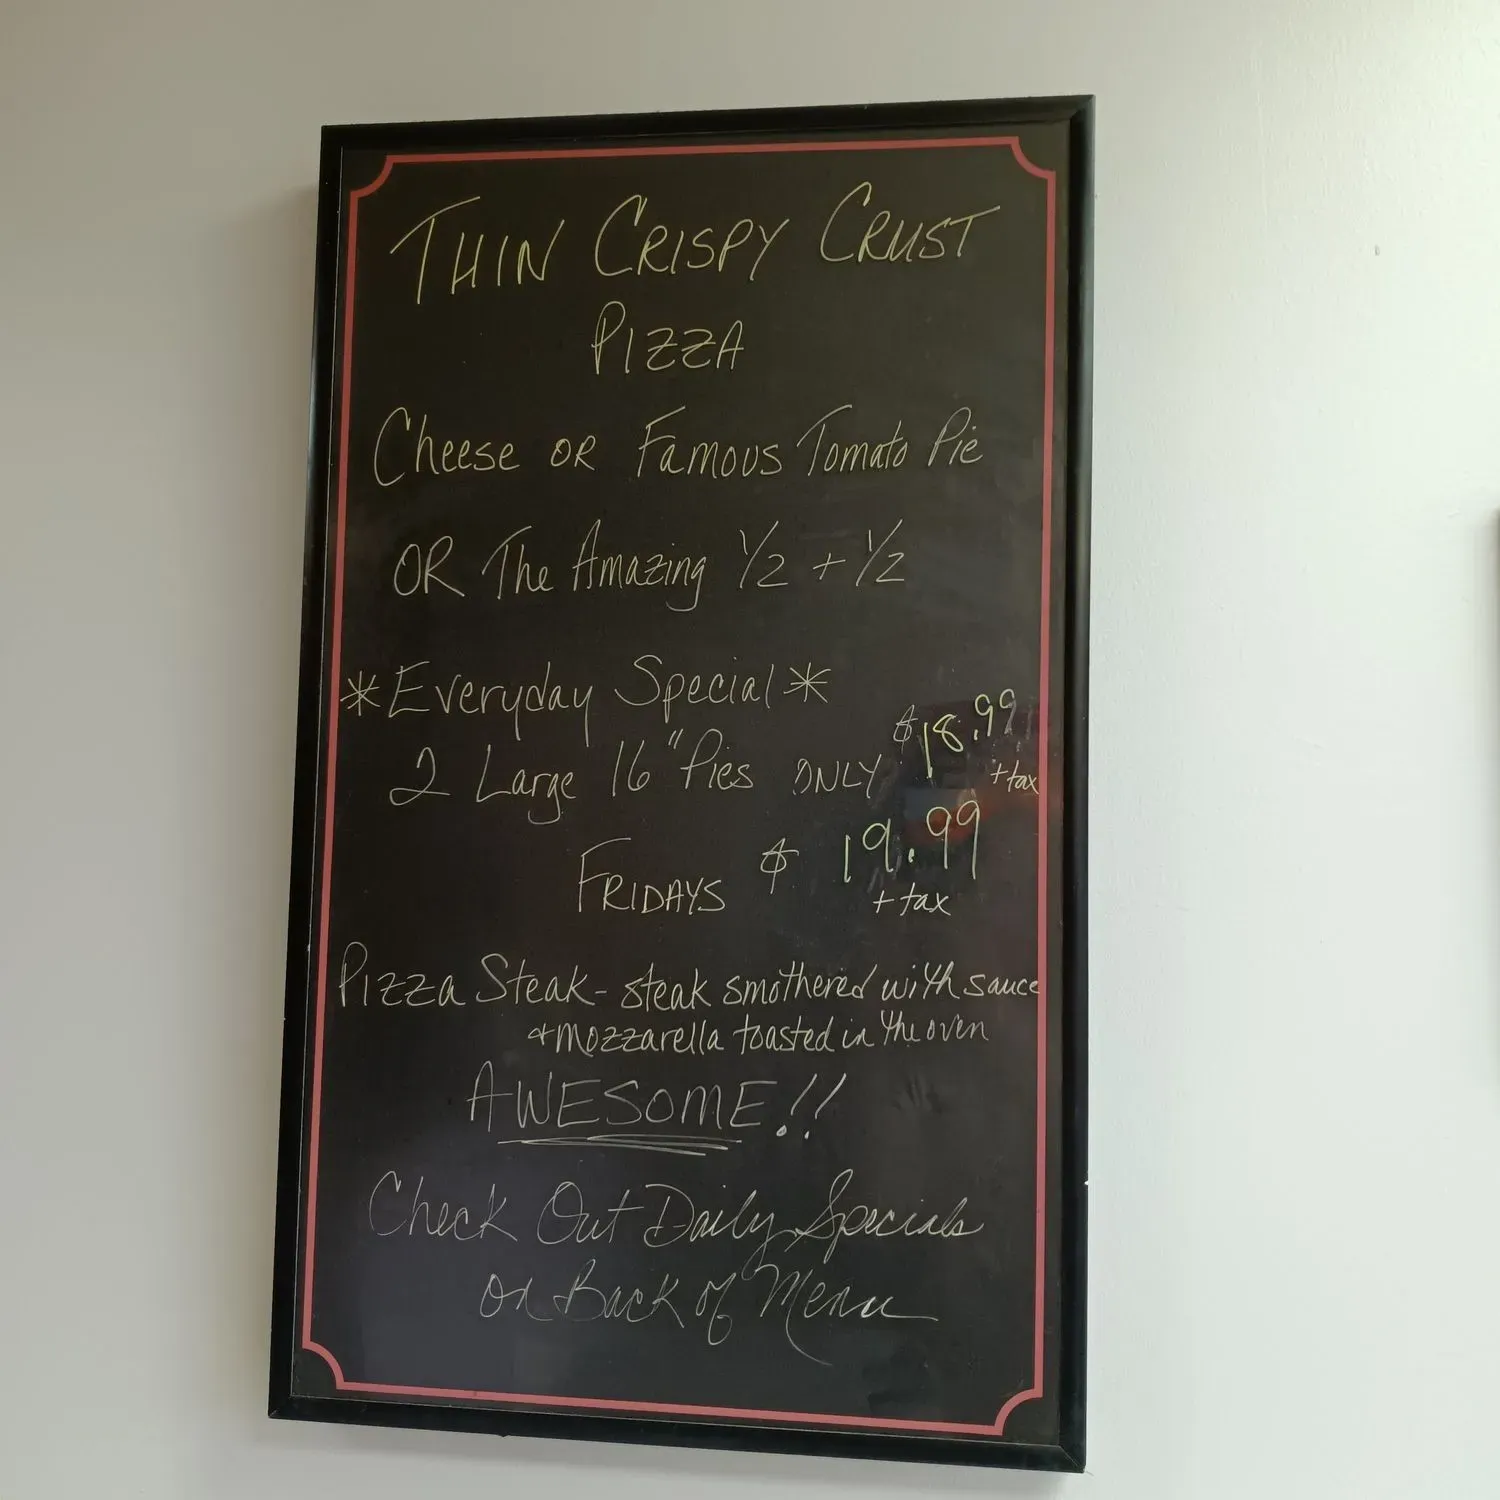 THIN CRISPY CRUST
PIZZA
Cheese OR Famous Tomato Pie
OR The Amazing 1/2 + 1/2
*Everyday Special*
2 Large 16" Pies ONLY $18.99
+tax
FRIDAYS $ 19.99
+ tax
Pizza Steak - steak smothered with sauce
+ mozzarella toasted in the oven
AWESOME!!
Check Out Daily Specials
on Back of Menu